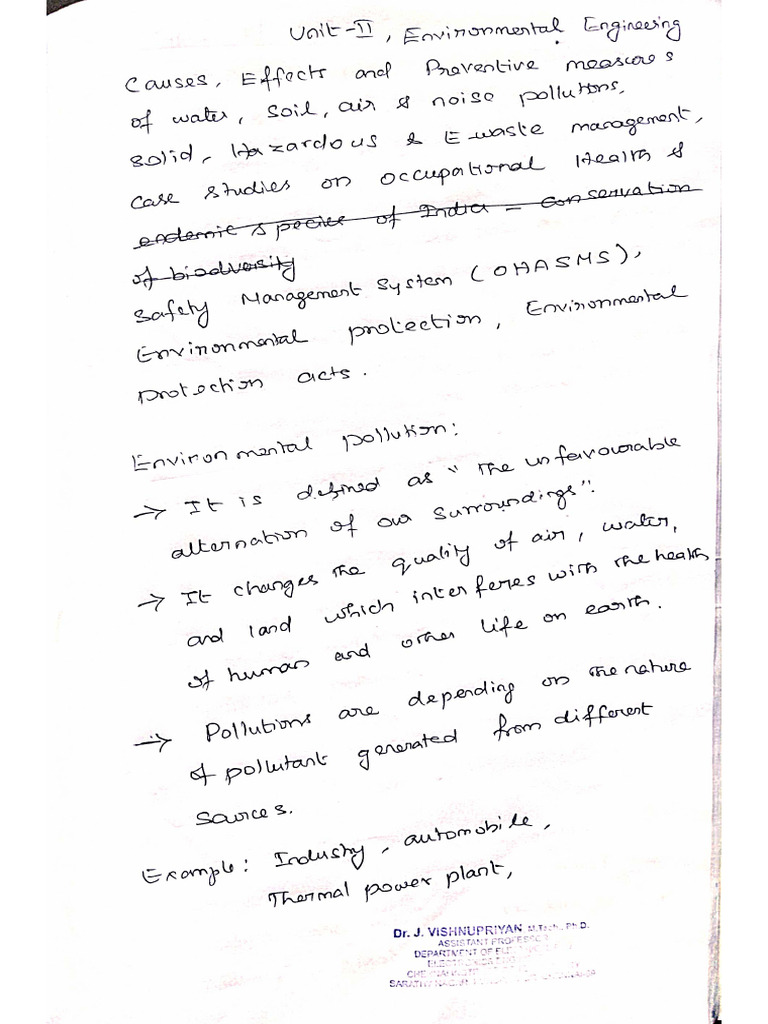 Unit-II, Environmental Engineering
Causes, Effects and Preventive measures
of water, soil, air & noise pollutions,
solid, Hazardous & E-waste management,
case studies on occupational Health &
endemic species of India - conservation
of biodversity
Safety Management System (OHASMS),
Environmental protection, Environmental
protection acts.
Environmental pollution:
→ It is defined as "The unfavourable
alternation of our surroundings".
→ It changes the quality of air, water,
and land which interferes with the health
of human and other life on earth.
→ Pollutions are depending on the nature
of pollutant generated from different
sources.
Example: Industry, automobile,
Thermal power plant,
Dr. J. VISHNUPRIYAN M.Tech., Ph.D.
ASSISTANT PROFESSOR
DEPARTMENT OF